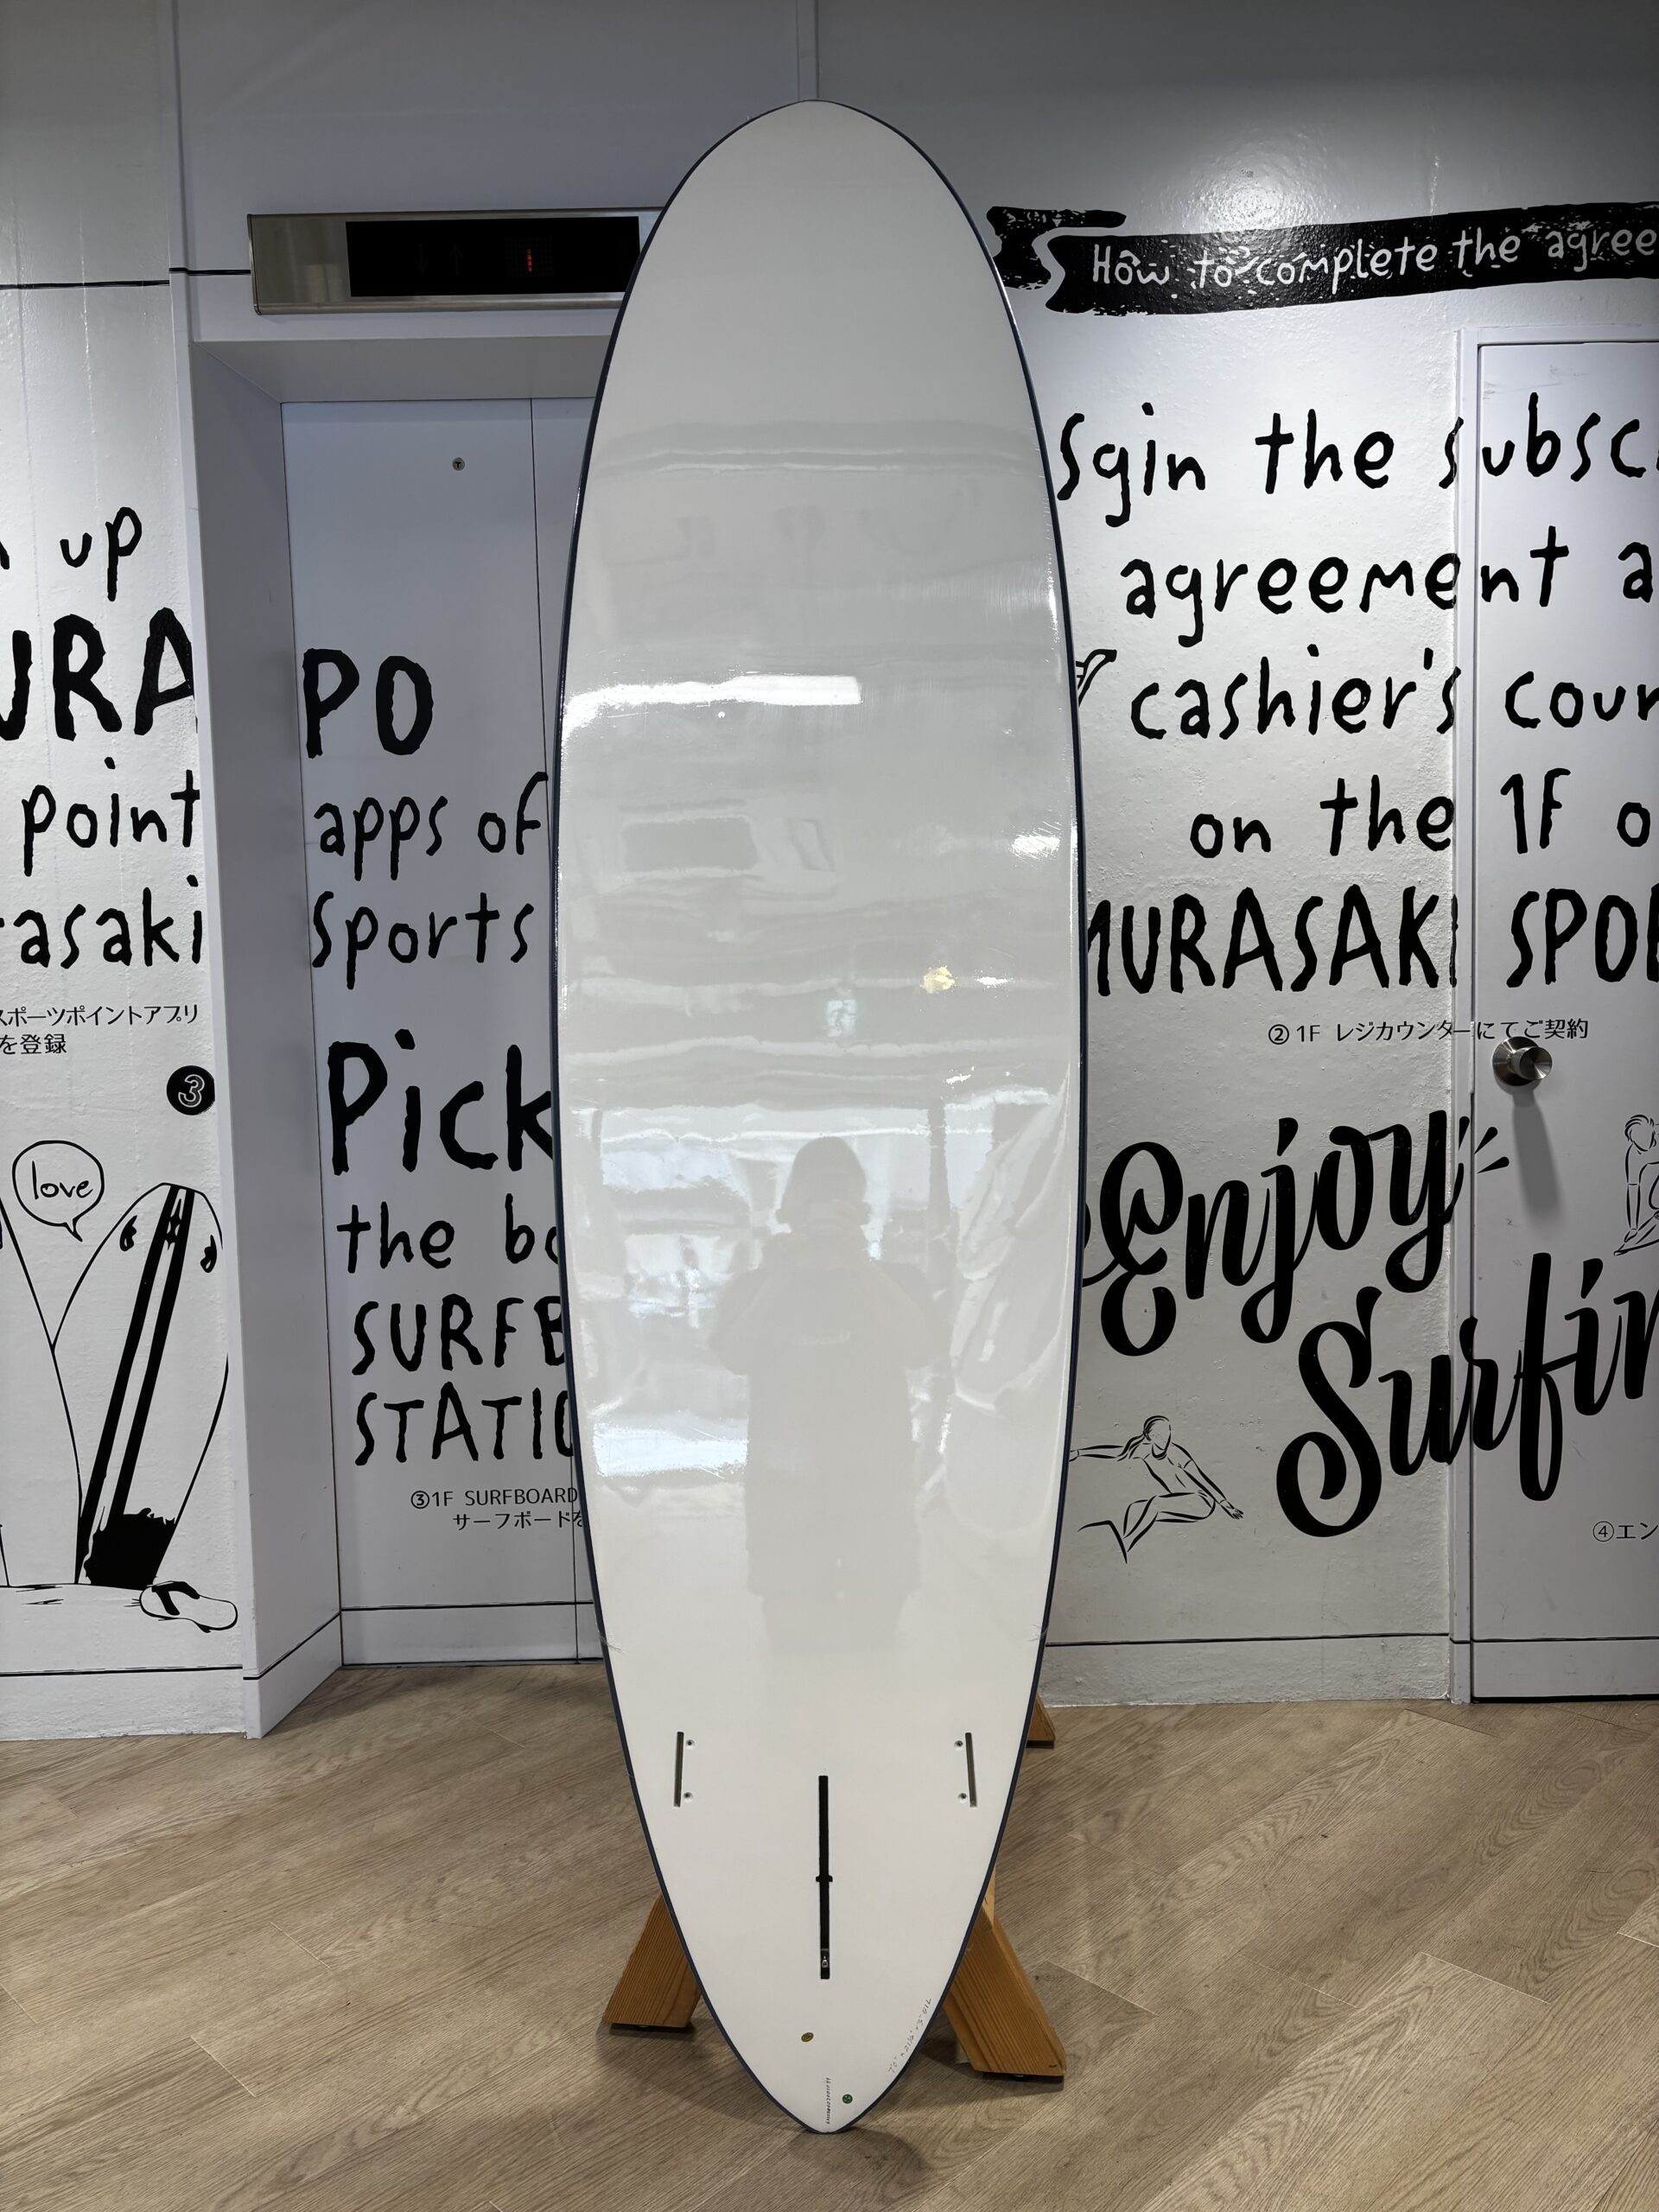 up
URA
PO
point
apps of
asaki
Sports
スポーツポイントアプリ
を登録
3
love
Pick
the bo
SURFB
STATIO
③1F SURFBOARD
サーフボードを
How to complete the agree
Sgin the subsc
agreement a
cashier's coun
on the 1F o
MURASAKI SPO
②1F レジカウンターにてご契約
Enjoy
Surfin
④エン